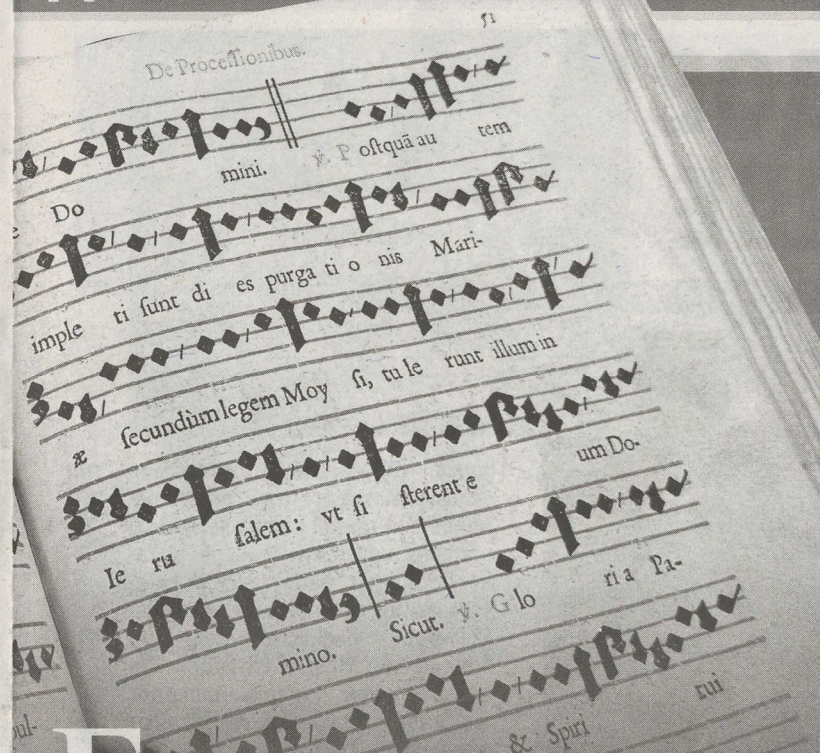 De Processionibus.
51
Do mini. ℣. Postquā au tem
imple ti ſunt di es purga ti o nis Mari-
æ ſecundùm legem Moy ſi, tu le runt illum in
Ie ru ſalem: vt ſi ſterent e um Do-
mino. Sicut. ℣. Glo ri a Pa-
& Spiri tui